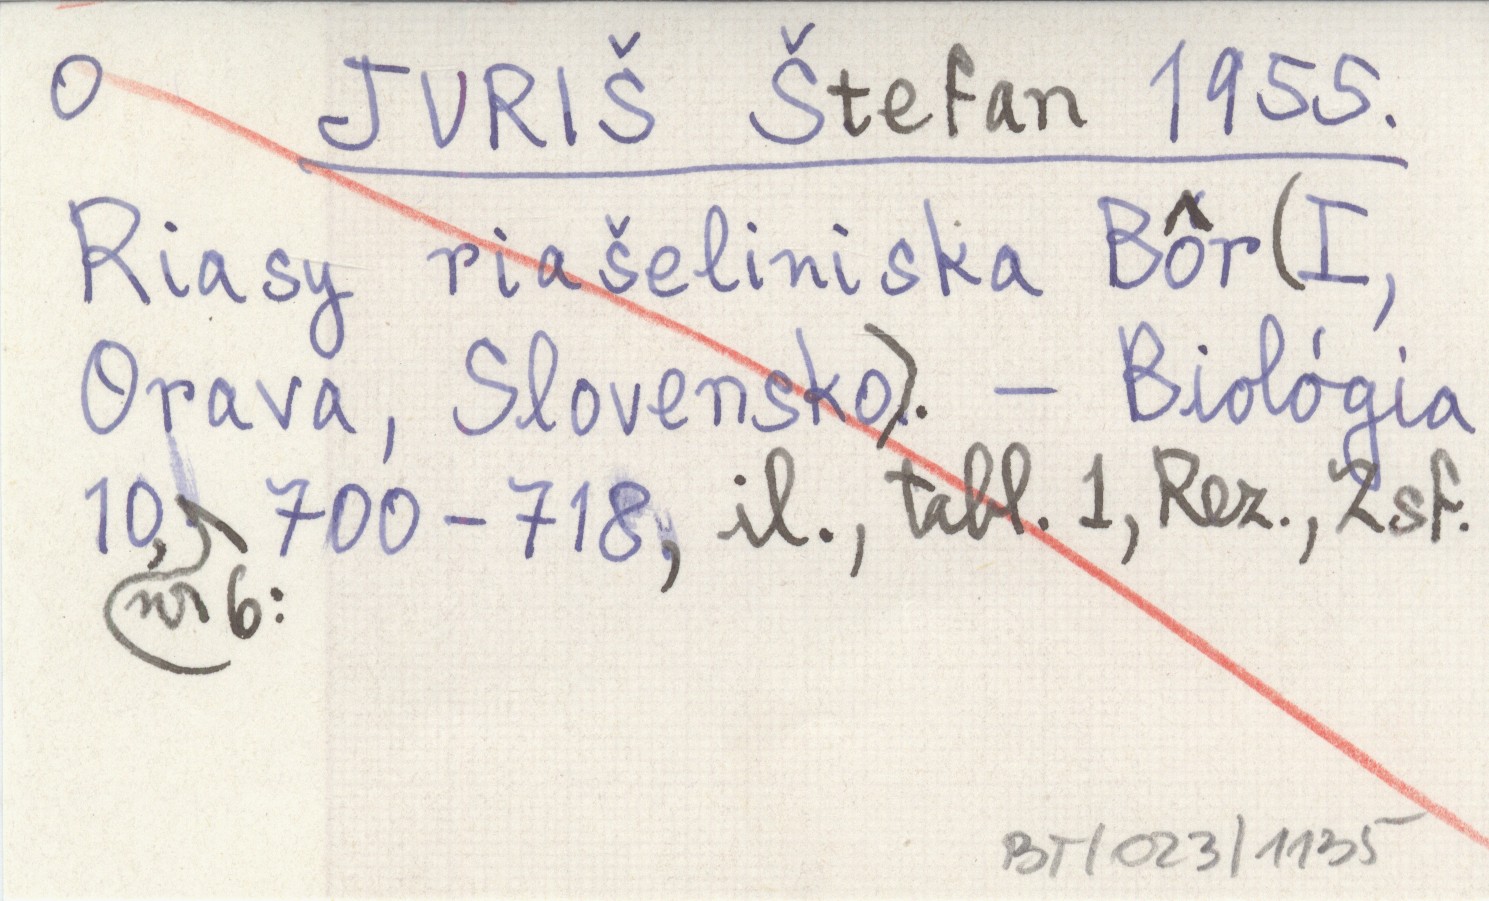 O JURIŠ Štefan 1955.
Riasy riašeliniska Bôr (I,
Orava, Slovensko). - Biológia
10, 700-718, il., tabl. 1, Rez., Zsf.
nr 6:
BT/023/1135